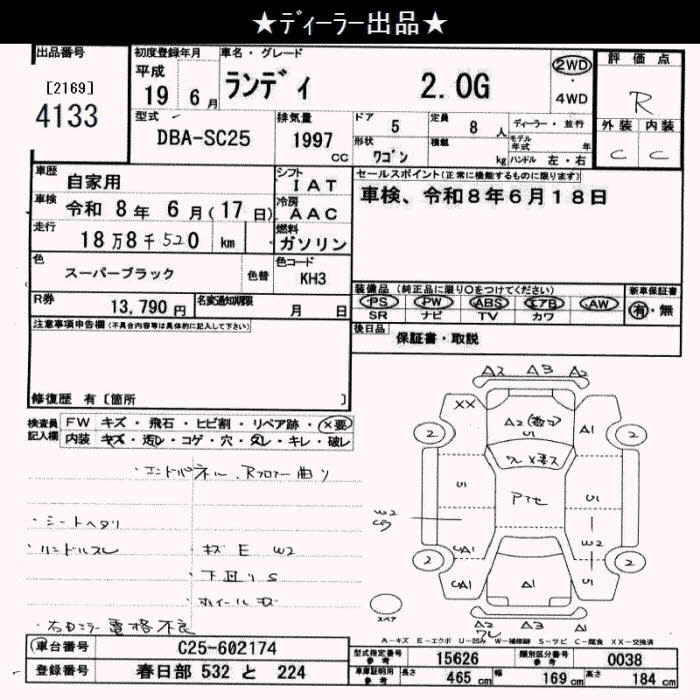 ★ディーラー出品★
出品番号
[2169]
4133
初度登録年月
平成
19 6月
車名・グレード
ランディ 2.0G
2WD
・
4WD
評価点
R
外装 内装
C C
型式
DBA-SC25
排気量
1997
cc
ドア
5
定員
8 人
形状
ワゴン
積載
kg
ディーラー・並行
モデル
年式 年
ハンドル 左・右
車歴
自家用
シフト
IAT
車検
令和 8年 6月(17日)
冷房
AAC
走行
18万8千520 km
燃料
ガソリン
色
スーパーブラック
色替
色コード
KH3
R券
13,790円
名変通知期限
月 日
セールスポイント(正常に機能するものに限ります)
車検、令和8年6月18日
装備品(純正品に限り○をつけてください)
PS PW ABS エアB AW
SR ナビ TV カワ
新車保証書
有・無
後日品
保証書・取説
注意事項申告欄(不具合内容等は具体的に記入して下さい)
修復歴 有〔箇所 〕
検査員
記入欄
FW キズ・飛石・ヒビ割・リペア跡・X要
内装 キズ・汚レ・コゲ・穴・欠レ・キレ・破レ
・エンドパネル、Rフロアー曲り
・シートヘタリ
・ハンドルスレ
・キズ E W2
下回りS
ホイールキズ
・右ドミラー電格不良
A2 A3 A2
XX
A2
U1
A1
2 2
ワレ X要ス
U1
アセ
U1
W2
W2
UA1
2 2
UA1
A1
U1
スペア
A2 A3 A1
ワレ
A-キズ E-エクボ U-凹み W-補修跡 S-サビ C-腐食 XX-交換済
車台番号
C25-602174
登録番号
春日部 532 と 224
型式指定番号
参考
15626
類別区分番号
参考
0038
車庫証明用
参考
長さ 465 cm 幅 169 cm 高さ 184 cm